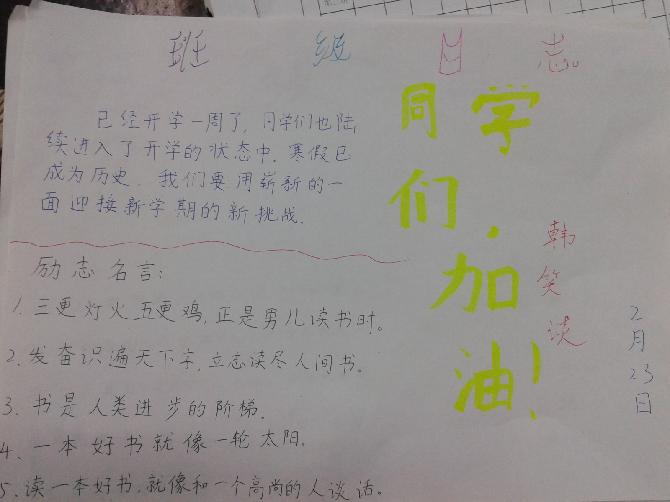 班级日志
已经开学一周了，同学们也陆
续进入了开学的状态中，寒假已
成为历史，我们要用崭新的一
面迎接新学期的新挑战．
同学
们，
加
油！
韩笑谈
2月23日
励志名言：
1．三更灯火五更鸡，正是男儿读书时。
2．发奋识遍天下字，立志读尽人间书。
3．书是人类进步的阶梯．
4．一本好书就像一轮太阳．
5．读一本好书，就像和一个高尚的人谈话。